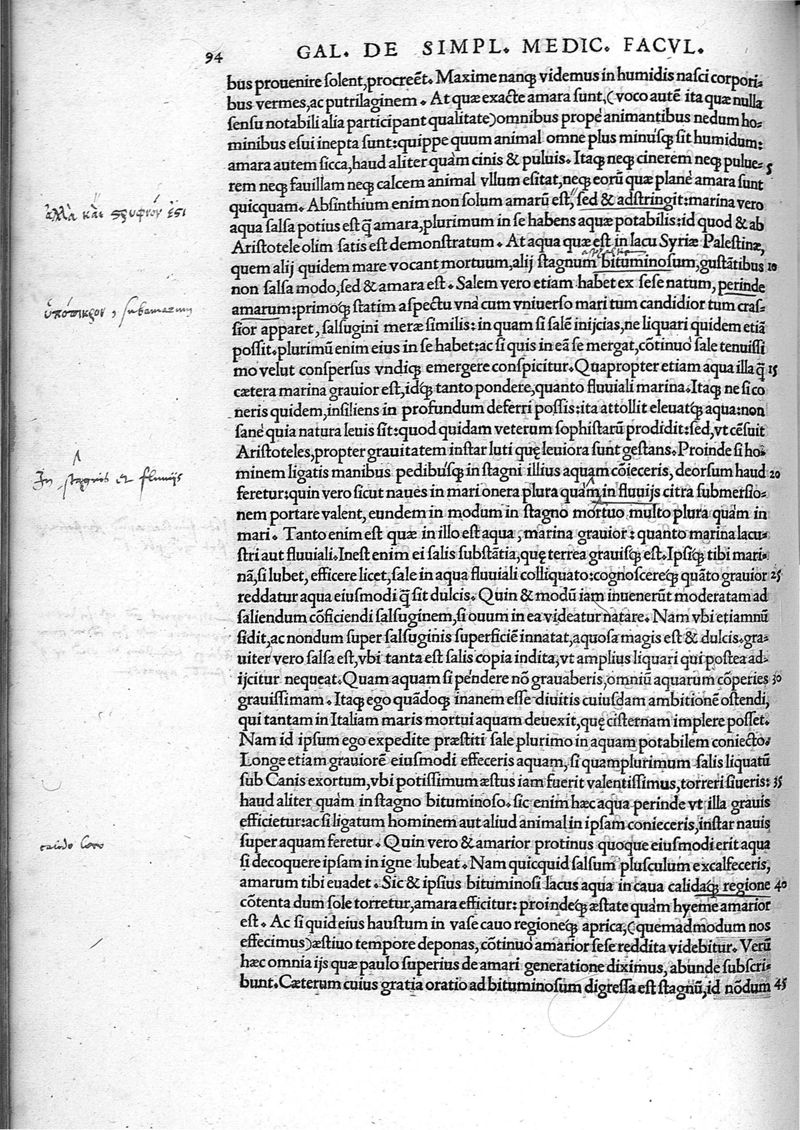 94
GAL. DE SIMPL. MEDIC. FACVL.
bus prouenire solent, procreēt. Maxime nanq; videmus in humidis nasci corpori-
bus vermes, ac putrilaginem. At quæ exacte amara sunt, (voco autē ita quæ nulla
sensu notabili alia participant qualitate) omnibus propè animantibus nedum ho-
minibus esui inepta sunt: quippe quum animal omne plus minusq; sit humidum:
amara autem sicca, haud aliter quàm cinis & puluis. Itaq; neq; cinerem neq; pulue- 5
rem neq; fauillam neq; calcem animal vllum esitat, neq; eorū quæ planè amara sunt
quicquam. Absinthium enim non solum amarū est, sed & adstringit: marina vero
ἀλλὰ καὶ στρυφνόν ἐστι
aqua salsa potius est q̃ amara, plurimum in se habens aquæ potabilis: id quod & ab
Aristotele olim satis est demonstratum. At aqua quæ est in lacu Syriæ Palestinæ,
quem alij quidem mare vocant mortuum, alij stagnum bituminosum, gustātibus 10
non salsa modo, sed & amara est. Salem vero etiam habet ex sese natum, perinde
amarum: primoq; statim aspectu vnà cum vniuerso mari tum candidior tum cras-
ὑπόπικρον, subamarum
sior apparet, salsugini meræ similis: in quam si salē inijcias, ne liquari quidem etiā
possit. plurimū enim eius in se habet: ac si quis in eā se mergat, cōtinuo sale tenuissi
mo velut conspersus vndiq; emergere conspicitur. Quapropter etiam aqua illa q̃ 15
cætera marina grauior est, idq; tanto pondere, quanto fluuiali marina. Itaq; ne si co
neris quidem, insiliens in profundum deferri possis: ita attollit eleuatq; aqua: non
sanè quia natura leuis sit: quod quidam veterum sophistarū prodidit: sed, vt cēsuit
Aristoteles, propter grauitatem instar luti quę leuiora sunt gestans. Proinde si ho-
minem ligatis manibus pedibusq; in stagni illius aquam cōieceris, deorsum haud 20
In stagnis et fluuijs
feretur: quin vero sicut naues in mari onera plura quàm in fluuijs citra submersio-
nem portare valent, eundem in modum in stagno mortuo multo plura quàm in
mari. Tanto enim est quæ in illo est aqua, marina grauior: quanto marina lacu-
stri aut fluuiali. Inest enim ei salis substātia, quę terrea grauisq; est. Ipsiq; tibi mari-
nā, si lubet, efficere licet, sale in aqua fluuiali colliquato: cognoscereq; quāto grauior 25
reddatur aqua eiusmodi q̃ sit dulcis. Quin & modū iam inuenerūt moderatam ad
saliendum cōficiendi salsuginem, si ouum in ea videatur natare. Nam vbi etiamnū
sidit, ac nondum super salsuginis superficiē innatat, aquosa magis est & dulcis. gra-
uiter vero salsa est, vbi tanta est salis copia indita, vt amplius liquari qui postea ad-
ijcitur nequeat. Quam aquam si pendere nō grauaberis, omniū aquarum cōperies 30
grauissimam. Itaq; ego quādoq; inanem esse diuitis cuiusdam ambitionē ostendi,
qui tantam in Italiam maris mortui aquam deuexit, quę cisternam implere posset.
Nam id ipsum ego expedite præstiti sale plurimo in aquam potabilem coniecto.
Longe etiam grauiorē eiusmodi effeceris aquam, si quamplurimum salis liquatū
sub Canis exortum, vbi potissimum æstus iam fuerit valentissimus, torreri siueris: 35
haud aliter quàm in stagno bituminoso. sic enim hæc aqua perinde vt illa grauis
efficietur: ac si ligatum hominem aut aliud animal in ipsam conieceris, instar nauis
super aquam feretur. Quin vero & amarior protinus quoque eiusmodi erit aqua
si decoquere ipsam in igne lubeat. Nam quicquid salsum plusculum excalfeceris,
amarum tibi euadet. Sic & ipsius bituminosi lacus aqua in caua calidaq; regione 40
cōtenta dum sole torretur, amara efficitur: proindeq; æstate quàm hyeme amarior
est. Ac si quid eius haustum in vase cauo regioneq; aprica, (quemadmodum nos
effecimus) æstiuo tempore deponas, cōtinuo amarior sese reddita videbitur. Verū
hæc omnia ijs quæ paulo superius de amari generatione diximus, abunde subscri-
bunt. Cæterum cuius gratia oratio ad bituminosum digressa est stagnū, id nōdum 45